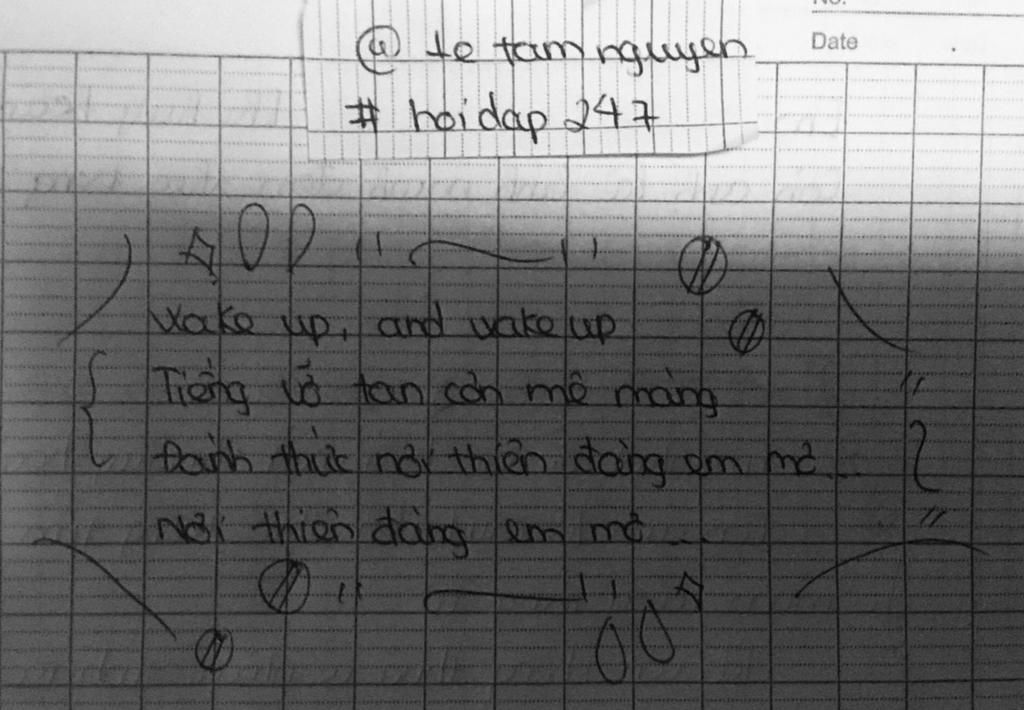 No.
Date
@ te tam nguyen
# hoi dap 247
Wake up, and wake up
Tiếng vỡ tan cơn mê màng
Đánh thức nơi thiên đàng em mơ...
Nơi thiên đàng em mơ...